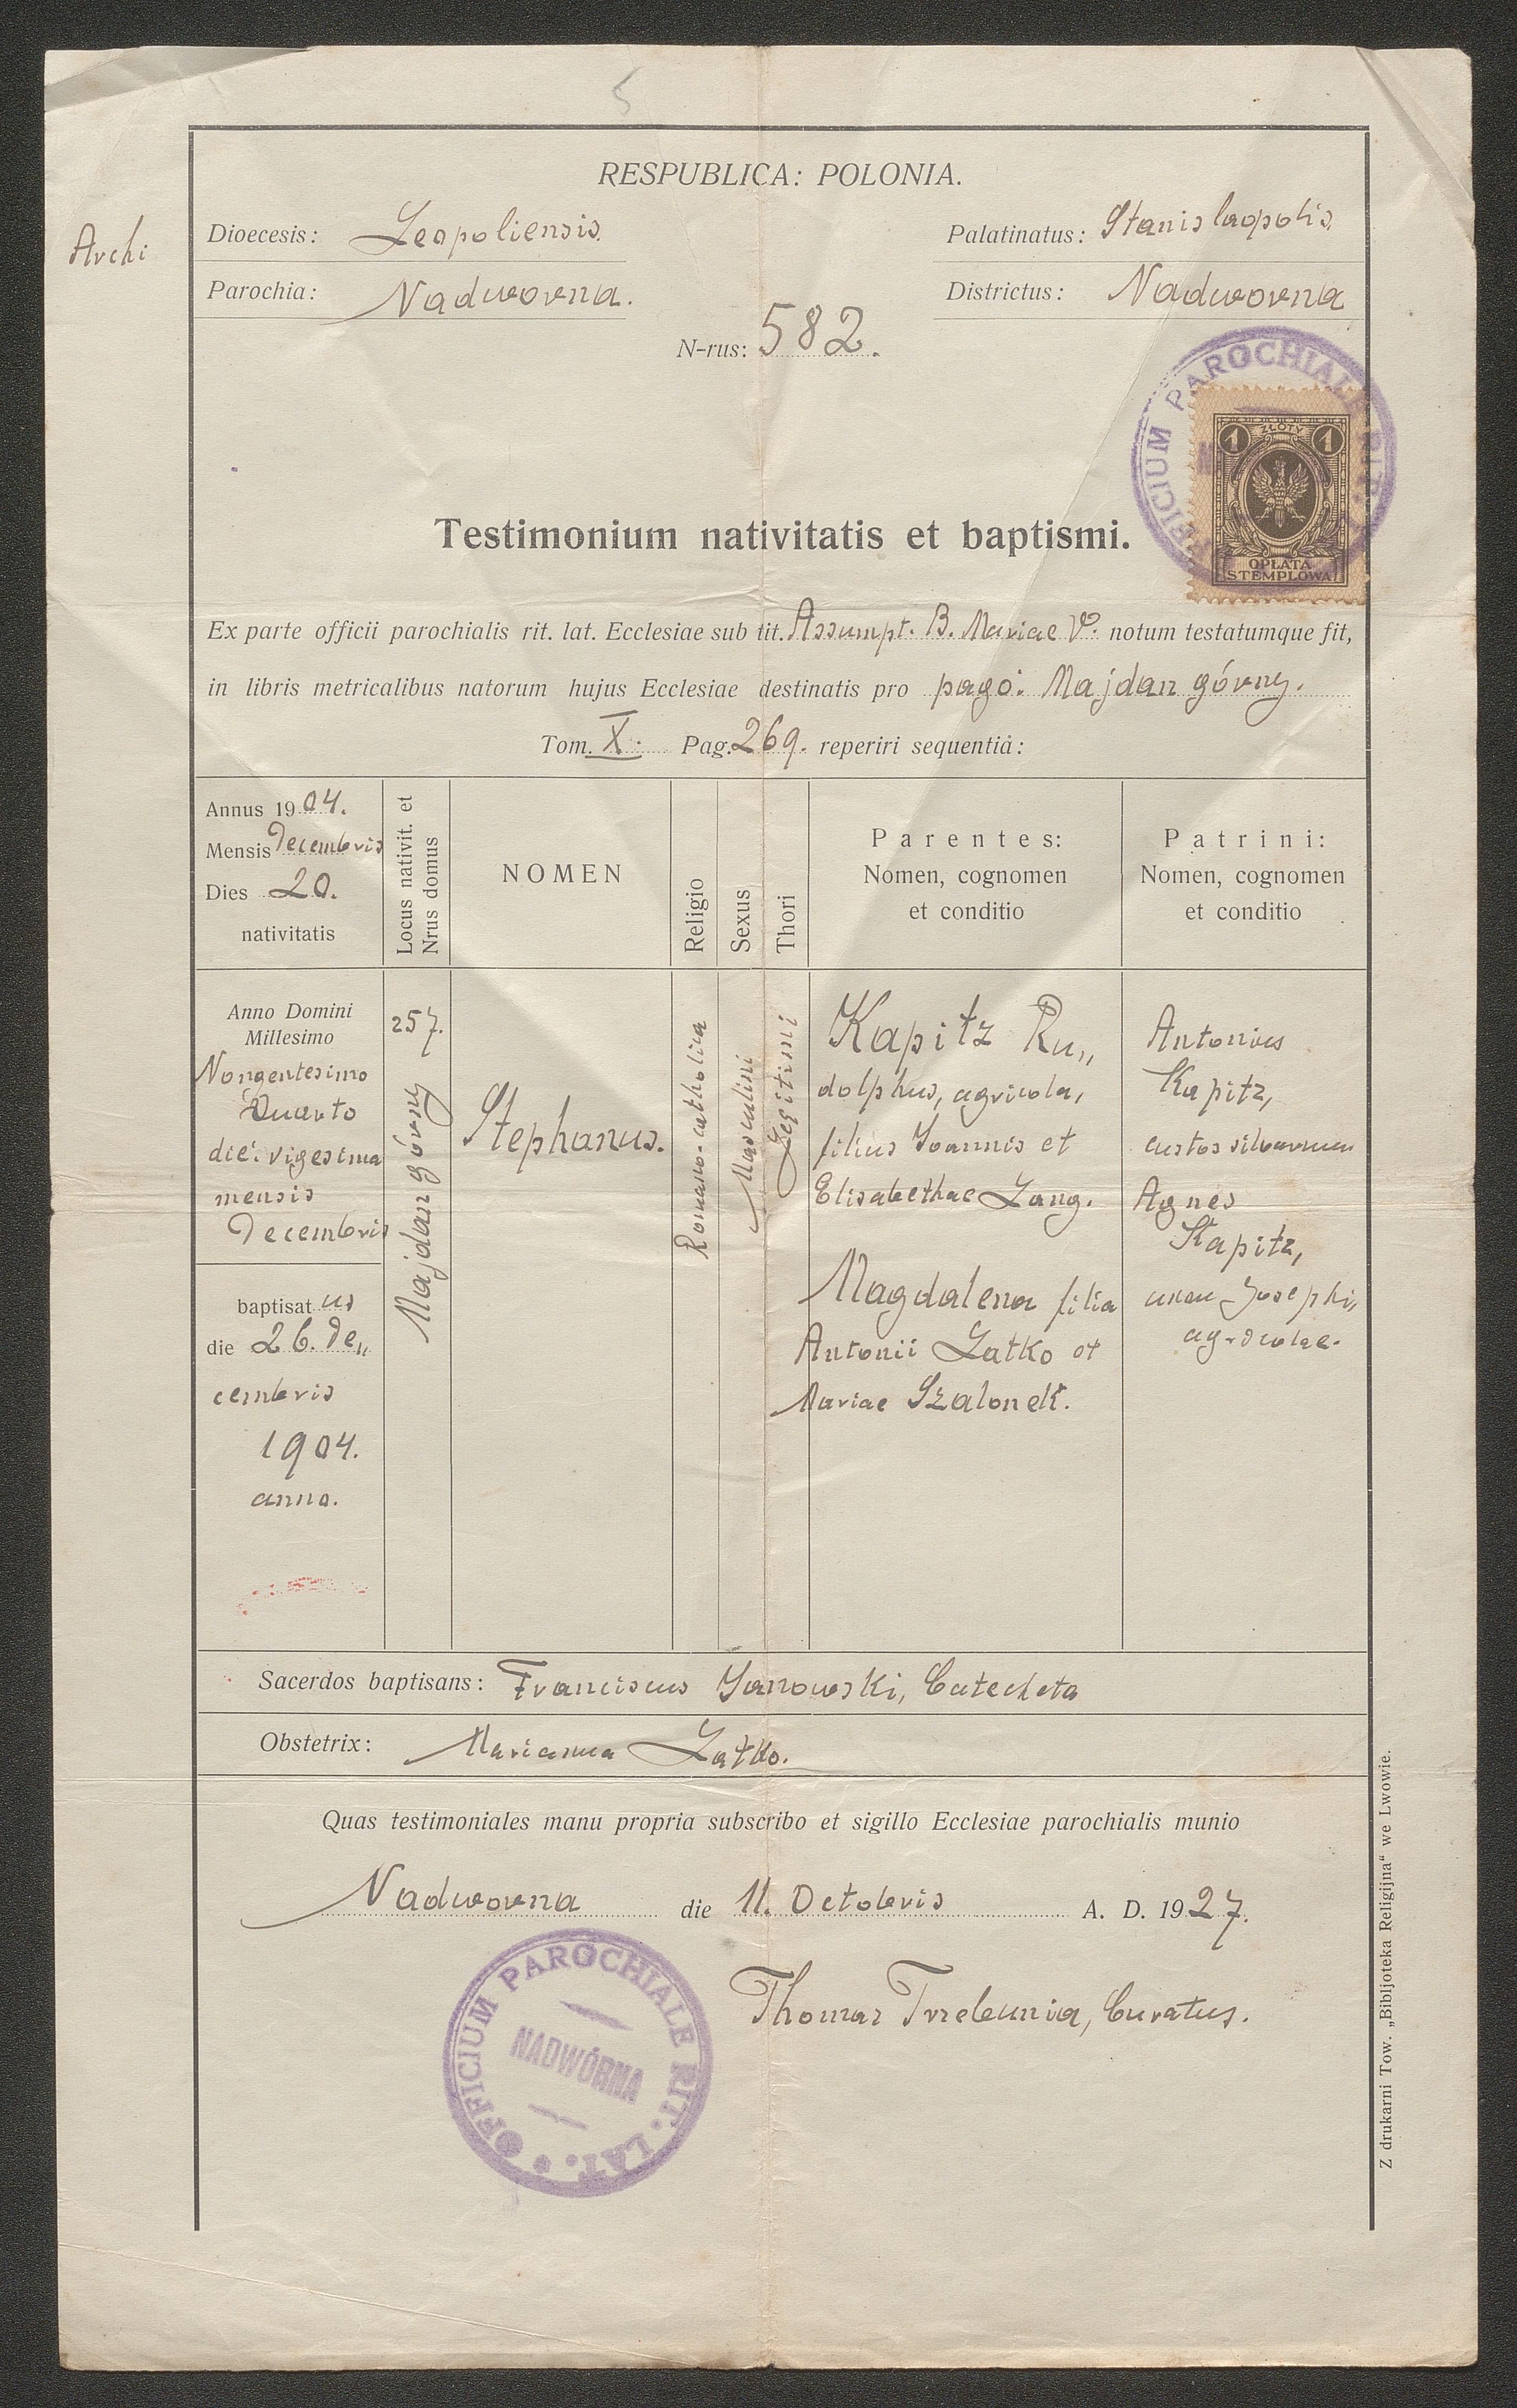 5
RESPUBLICA: POLONIA.
Archi
Dioecesis: Leopoliensis.
Palatinatus: Stanislaopolis.
Parochia: Nadworna.
Districtus: Nadworna
N-rus: 582.
OFFICIUM PAROCHIALE RIT.
1 ZŁOTY 1
OPŁATA
STEMPLOWA
Testimonium nativitatis et baptismi.
Ex parte officii parochialis rit. lat. Ecclesiae sub tit. Assumpt. B. Mariae V. notum testatumque fit,
in libris metricalibus natorum hujus Ecclesiae destinatis pro pago: Majdan górny.
Tom. X. Pag. 269. reperiri sequentia:
Annus 1904.
Mensis Decembris
Dies 20.
nativitatis
Locus nativit. et
Nrus domus
NOMEN
Religio
Sexus
Thori
Parentes:
Nomen, cognomen
et conditio
Patrini:
Nomen, cognomen
et conditio
Anno Domini
Millesimo
Nongentesimo
Quarto
die: vigesima
mensis
Decembris
baptisatus
die 26. De„
cembris
1904.
anno.
257.
Majdan górny
Stephanus.
Romano-catholica
Masculini
Legitimi
Kapitz Ru„
dolphus, agricola,
filius Joannis et
Elisabethae Lang.
Magdalena filia
Antonii Latko et
Mariae Szalonek.
Antonius
Kapitz,
custos silvarum
Agnes
Kapitz,
uxor Josephi,
agricolae.
Sacerdos baptisans: Franciscus Janowski, Catecheta
Obstetrix: Marianna Latko.
Quas testimoniales manu propria subscribo et sigillo Ecclesiae parochialis munio
Nadworna die 11. Octobris A. D. 1927.
Thomas Trzebunia, Curatus.
OFFICIUM PAROCHIALE RIT. LAT.
NADWÓRNA
Z drukarni Tow. „Bibijoteka Religijna“ we Lwowie.